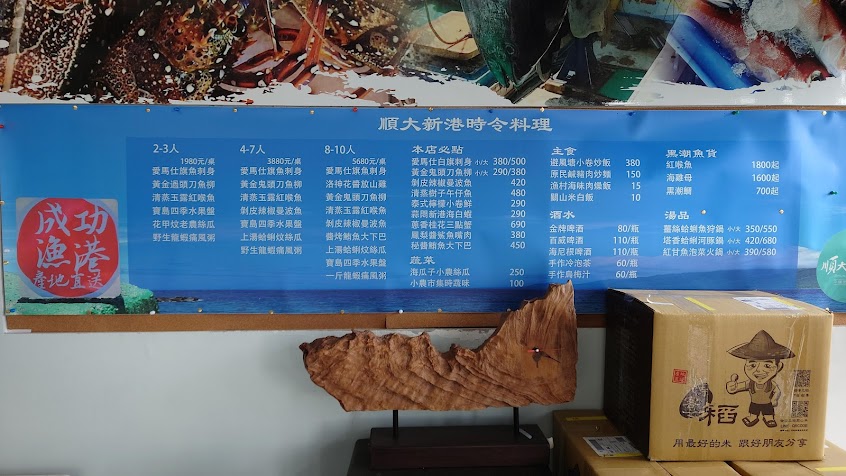 順大新港時令料理
2-3人
1980元/桌
愛馬仕旗魚刺身
黃金鬼頭刀魚柳
清蒸玉露紅喉魚
寶島四季水果盤
花甲炆老農絲瓜
野生龍蝦痛風粥
4-7人
3880元/桌
愛馬仕旗魚刺身
黃金鬼頭刀魚柳
清蒸玉露紅喉魚
剝皮辣椒曼波魚
寶島四季水果盤
上湯蛤蜊炆絲瓜
野生龍蝦痛風粥
8-10人
5680元/桌
愛馬仕旗魚刺身
黃金鬼頭刀魚柳
洛神花醬敖山雞
清蒸玉露紅喉魚
剝皮辣椒曼波魚
醬烤鮪魚大下巴
上湯蛤蜊炆絲瓜
寶島四季水果盤
一斤龍蝦痛風粥
本店必點
愛馬仕白旗刺身 小/大 380/500
黃金鬼頭刀魚柳 小/大 290/380
剝皮辣椒曼波魚 420
清蒸樹子午仔魚 480
泰式檸檬小卷鮮 290
蒜闆新港海白蝦 290
蔥香桂花三點蟹 690
鳳梨醬鯊魚嘴肉 380
秘醬鮪魚大下巴 450
蔬菜
海瓜子小農絲瓜 250
小農市集時蔬味 100
主食
避風塘小卷炒飯 380
原民鹹豬肉炒麵 150
漁村海味肉燥飯 15
關山米白飯 10
酒水
金牌啤酒 80/瓶
百威啤酒 110/瓶
海尼根啤酒 110/瓶
手作冷泡茶 60/瓶
手作烏梅汁 60/瓶
黑潮魚貨
紅喉魚 1800起
海雞母 1600起
黑潮鯛 700起
湯品
薑絲蛤蜊魚狩鍋 小/大 350/550
塔香蛤蜊河豚鍋 小/大 420/680
紅甘魚泡菜火鍋 小/大 390/580
成功
漁港
產地直送
順大
稻
用最好的米 跟好朋友分享